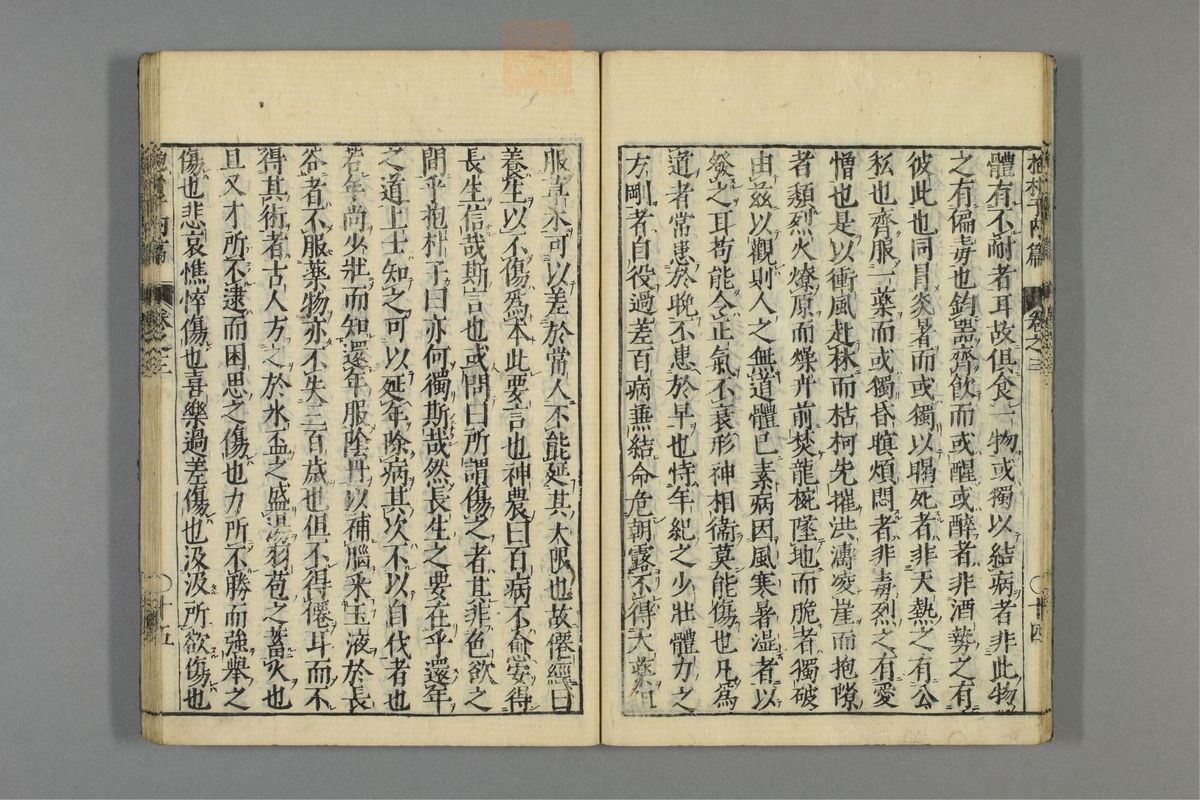 抱朴子內篇 卷之三 〇十四
體有不耐者耳故俱食一物或獨以結病者非此物
之有偏毒也鈞器齊飲而或醒或醉者非酒勢之有
彼此也同冒炎暑而或獨以暍死者非天熱之有公
私也齊服一藥而或獨昏瞑煩悶者非毒烈之有愛
憎也是以衝風赴林而枯柯先摧洪濤凌崖而拍隙
者頹烈火燎原而燥卉前焚龍椀墜地而脆者獨破
由茲以觀則人之無道體已素病因風寒暑濕者以
發之耳苟能令正氣不衰形神相衞莫能傷也凡爲
道者常患於晚不患於早也恃年紀之少壯體力之
方剛者自役過差百病兼結命危朝露不得大藥但
服草木可以差於常人不能延其大限也故僊經曰
養生以不傷爲本此要言也神農曰百病不愈安得
長生信哉斯言也或問曰所謂傷之者其非色欲之
間乎抱朴子曰亦何獨斯哉然長生之要在乎還年
之道上士知之可以延年除病其次不以自伐者也
若年尚少壯而知還年服陰丹以補腦采玉液於長
谷者不服藥物亦不失三百歲也但不得僊耳而不
得其術者古人方之於氷盃之盛湯羽苞之蓄火也
且又才所不逮而困思之傷也力所不勝而強舉之
傷也悲哀憔悴傷也喜樂過差傷也汲汲所欲傷也
抱朴子內篇 卷之三 〇十五